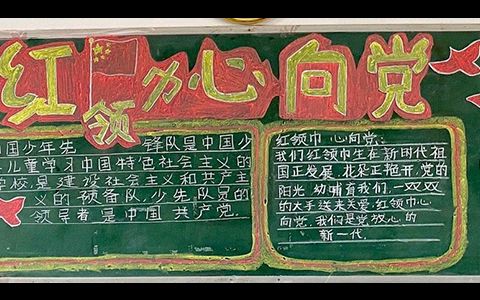 红领巾心向党
国少年先 锋队是中国少
儿童学习中国特色社会主义的
学校,是建设社会主义和共产主
义的预备队,少先队员的
领导者是中国共产党.
红领巾 心向党:
我们红领巾生在新时代祖
国正发展,花朵正艳开,党的
阳光 幼哺育我们,一双双
的大手送来关爱,红领巾心
向党,我们是党放心的
新一代.